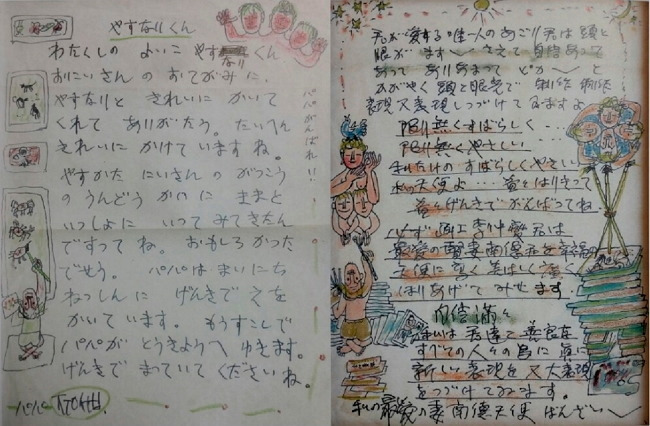 やすなりくん
わたくしの よいこ やすなりくん
おにいさんの おてがみに、
やすなりと きれいに かいて
くれて ありがとう。たいへん
きれいに かけて いますね。
やすかた にいさんの がっこう
の うんどう かいに ままと
いっしょに いって みてきたん
ですってね。おもしろかった
でせう。パパは まいにち
ねっしんに げんきで えを
かいて います。もうすこしで
パパが とうきょうへ ゆきます。
げんきで まっていて くださいね。
パパ
パパがんばれ!!
私が愛する唯一人のあごり君は頭と
眼がます〳〵さえて 自信あって
あって ありあまって
かがやく 頭と眼光で 制作 制作
表現又表現しつづけて ゐますよ
限り無くすばらしく…
限り無くやさしい
私だけの すばらしくやさしい
私の天使よ…益々はりきって
益々げんきで がんばってね
必ず 画工李仲燮君は
最愛の賢妻南德君を幸福の
天使に
はりあげて みせます
自信満々
私は 君達と 善良な
すべての人々の為に 真に
新しい表現を 又 大表現
をつづけてゐます。
私の最愛の妻南德天使 ばんざい〳〵